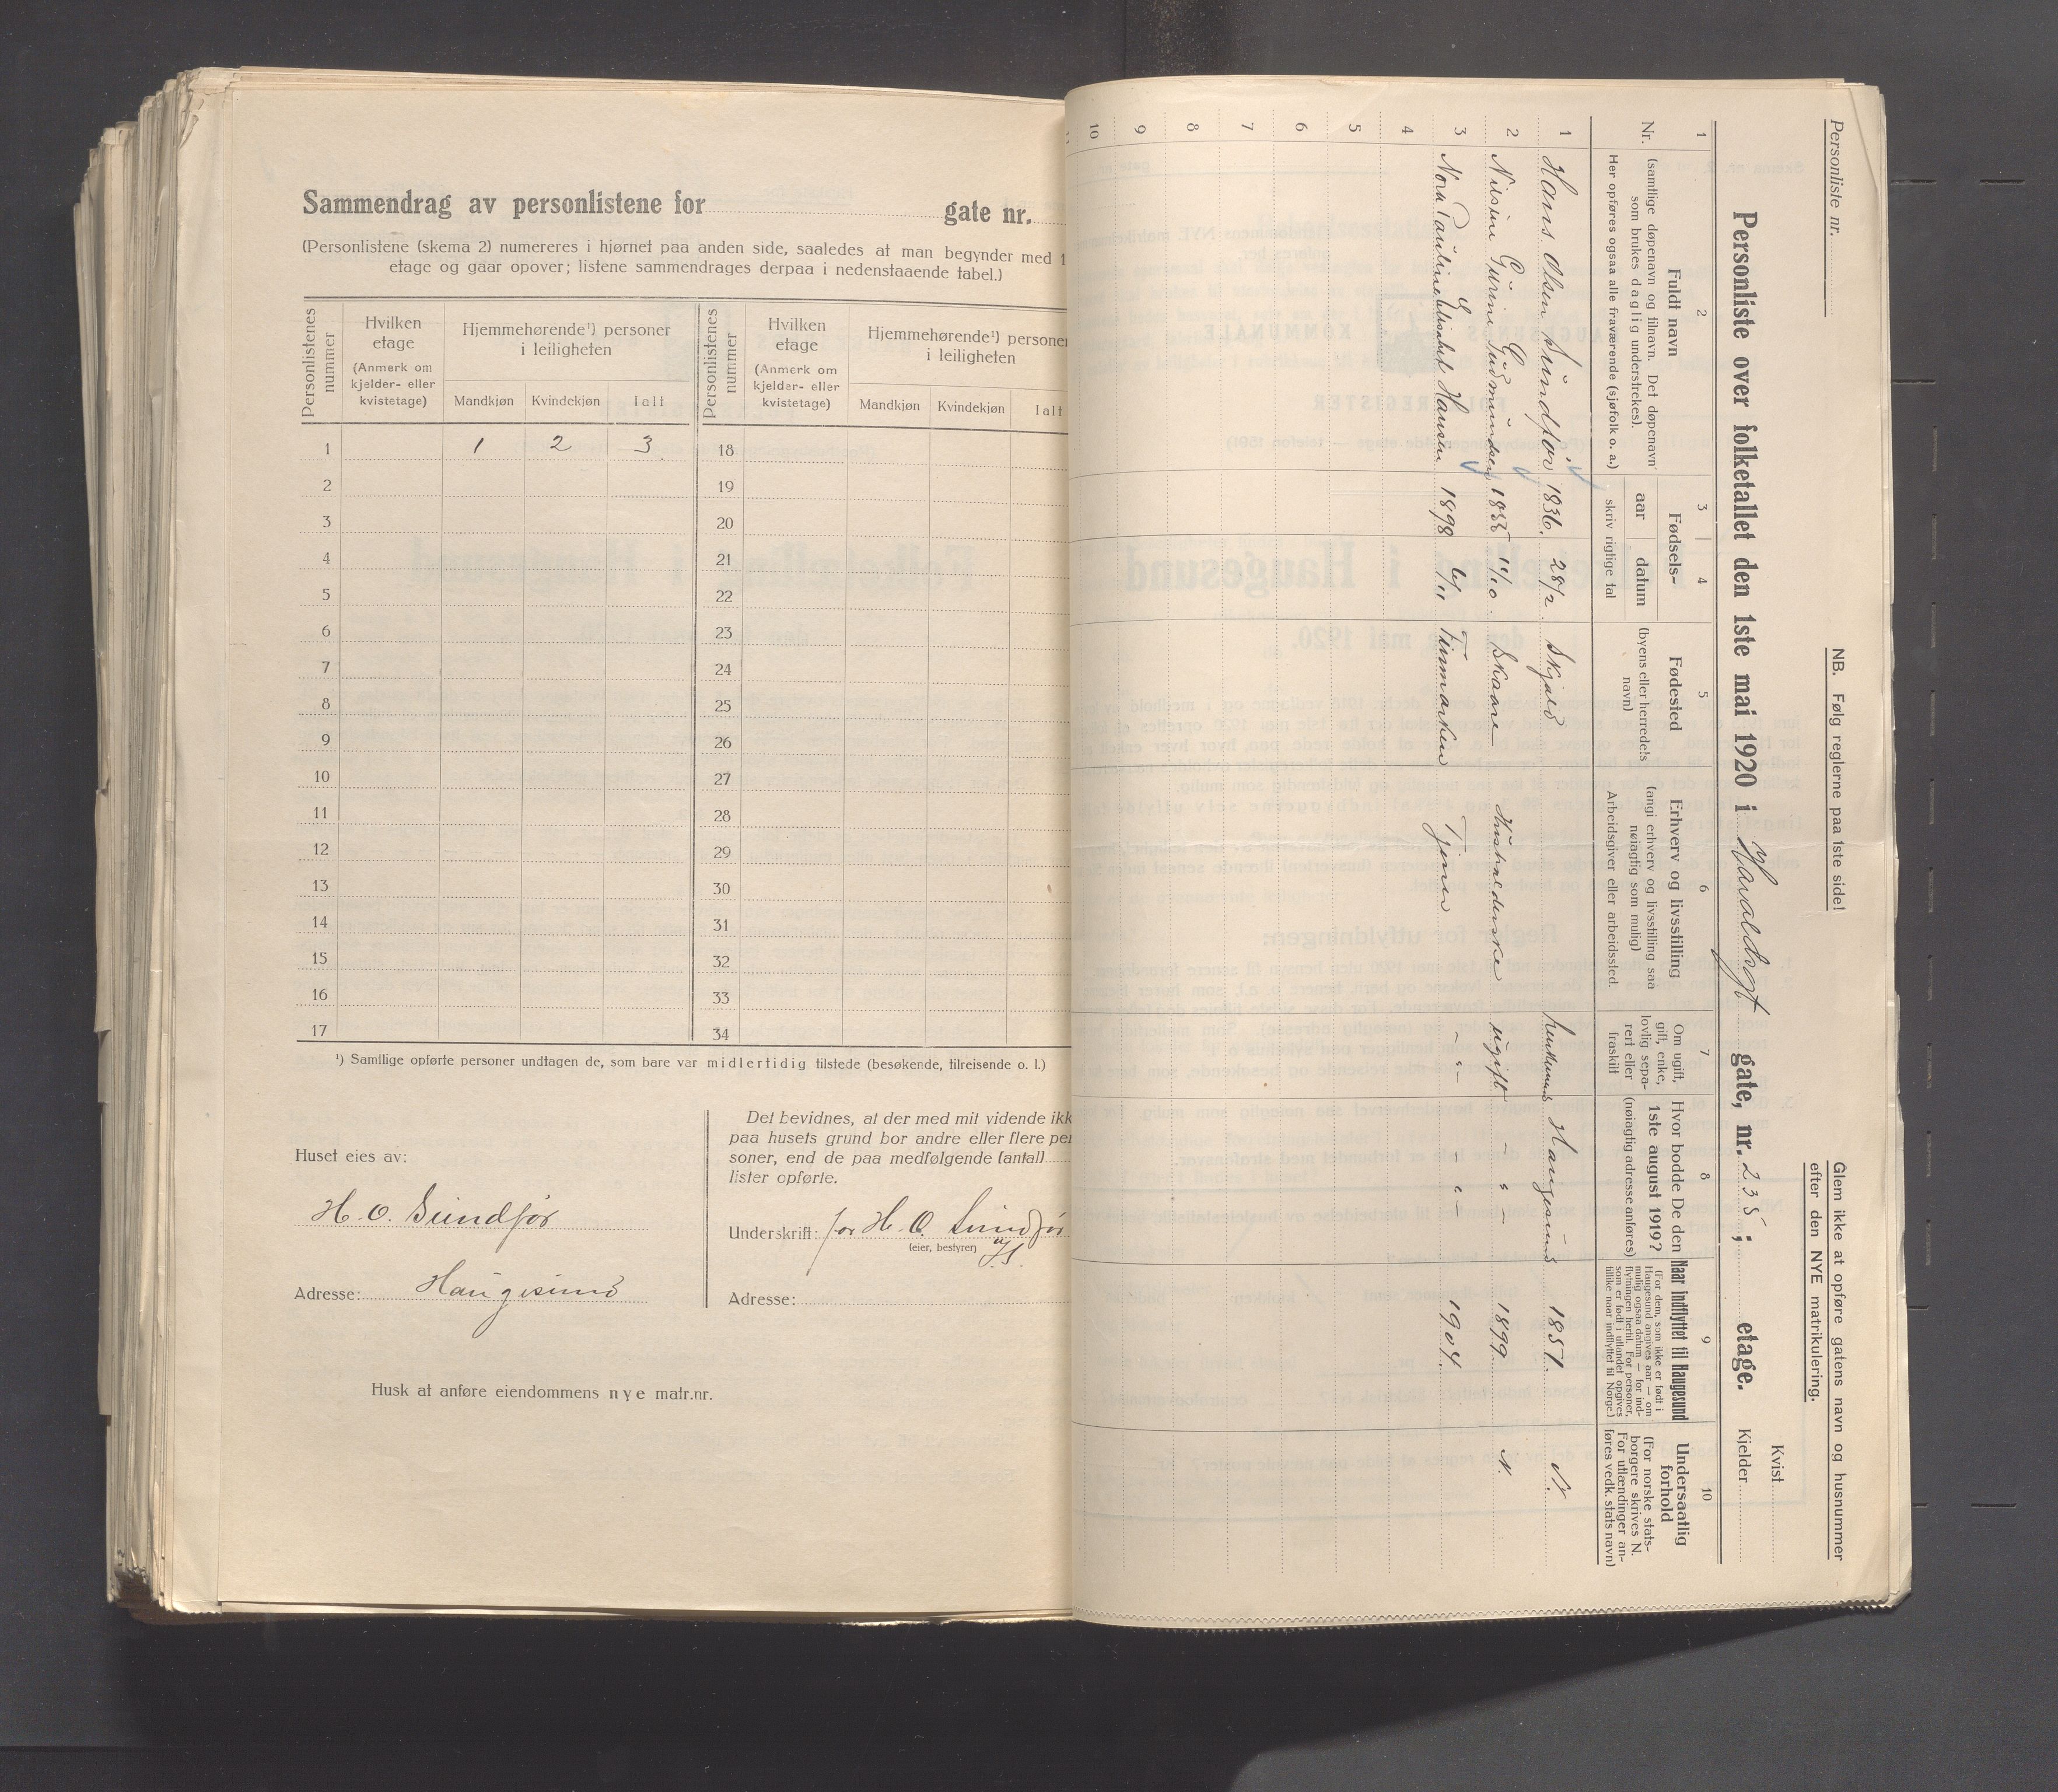 Sammendrag av personlistene for gate nr.
(Personlistene (skema 2) numereres i hjørnet paa anden side, saaledes at man begynder med 1
etage og gaar opover; listene sammendrages derpaa i nedenstaaende tabel.)
Personlistenes nummer
Hvilken etage (Anmerk om kjelder- eller kvistetage)
Hjemmehørende¹) personer i leiligheten
Mandkjøn Kvindekjøn Ialt
Personlistenes nummer
Hvilken etage (Anmerk om kjelder- eller kvistetage)
Hjemmehørende¹) personer i leiligheten
Mandkjøn Kvindekjøn Ialt
1 1 2 3 18
2 19
3 20
4 21
5 22
6 23
7 24
8 25
9 26
10 27
11 28
12 29
13 30
14 31
15 32
16 33
17 34
¹) Samtlige opførte personer undtagen de, som bare var midlertidig tilstede (besøkende, tilreisende o. l.)
Huset eies av:
H. O. Sundfør
Adresse: Haugesund
Det bevidnes, at der med mit vidende ikk
paa husets grund bor andre eller flere per
soner, end de paa medfølgende (antal)
lister opførte.
Underskrift: for H. O. Sundfør
(eier, bestyrer)
Adresse:
Husk at anføre eiendommens nye matr.nr.
Personliste nr.
NB. Følg reglerne paa 1ste side!
Glem ikke at opføre gatens navn og husnummer
efter den NYE matrikulering.
Kvist
Personliste over folketallet den 1ste mai 1920 i Haraldsgt gate, nr. 235; etage.
Kjelder
1 2 3 4 5 6 7 8 9 10
Nr.
Fuldt navn
(samtlige døpenavn og tilnavn. Det døpenavn
som brukes daglig understrekes).
Her opføres ogsaa alle fraværende (sjøfolk o. a.)
Fødsels-
aar datum
skriv rigtige tal
Fødested
(byens eller herredets
navn)
Erhverv og livsstilling
(angi erhverv og livsstilling saa
nøiagtig som mulig)
Arbeidsgiver eller arbeidssted.
Om ugift,
gift, enke,
lovlig sepa-
rert eller
fraskilt
Hvor bodde De den
1ste august 1919?
(nøiagtig adresse anføres)
Naar indflyttet til Haugesund
(For dem, som ikke er født i
Haugesund angives aar — om
mulig ogsaa datum — for ind-
flytningen hertil. For personer,
som er født i utlandet opgives
tillike naar indflyttet til Norge)
Undersaatlig
forhold
(For norske stats-
borgere skrives N.
For utlændinger an-
føres vedk. stats navn)
1 Hans Olsen Sundfør 1836. 28/2. Skjold Haugesund 1857. N.
2 Nilsine Gurine Gudmundsen 11/10. Skaare Husholderske ugift - " - 1899 N.
3 Nora Pauline Elisabet Hansen 1898 6/11 Finmarken Tjener - " - - " - 1904.
4
5
6
7
8
9
10